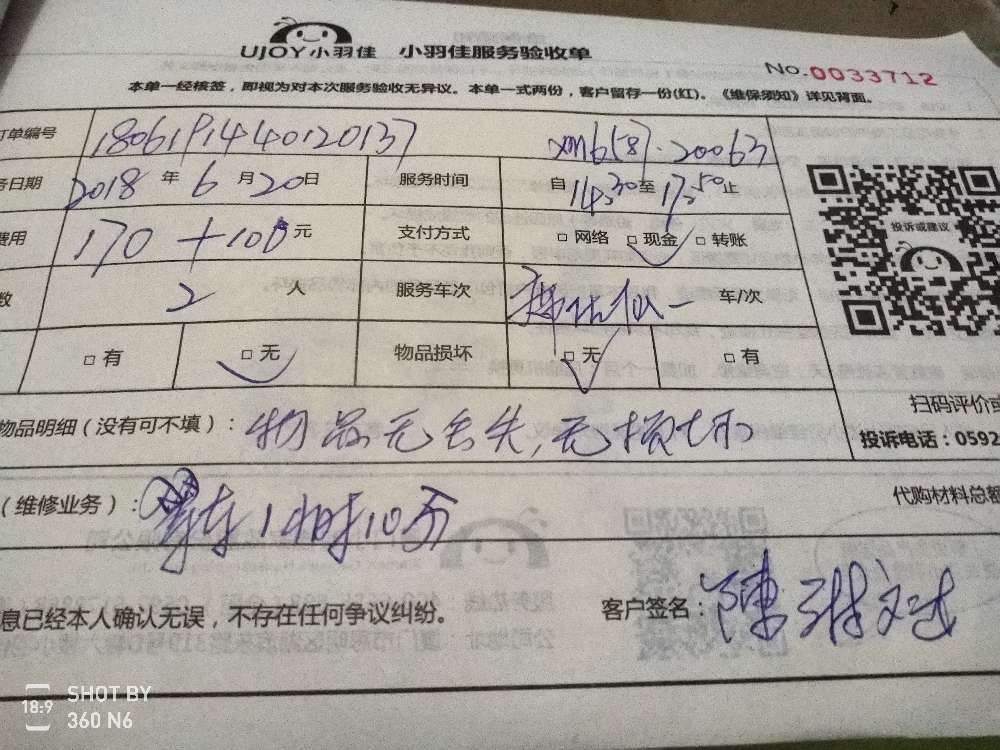 UJOY小羽佳 小羽佳服务验收单
No.0033712
本单一经核签，即视为对本次服务验收无异议。本单一式两份，客户留存一份(红)。《维保须知》详见背面。
订单编号 1806191440120137
务日期 2018 年 6 月 20 日 服务时间 自 14:30 至 17:50 止
费用 170 + 100 元 支付方式 □ 网络 □ 现金 □ 转账
数 2 人 服务车次 一 车/次
□ 有 □ 无 物品损坏 □ 无 □ 有
投诉或建议
物品明细（没有可不填）： 物品无丢失，无损坏
扫码评价或
投诉电话：0592
（维修业务）： 等车1小时10分
代购材料总额
息已经本人确认无误，不存在任何争议纠纷。 客户签名： 陳
18:9 SHOT BY
360 N6